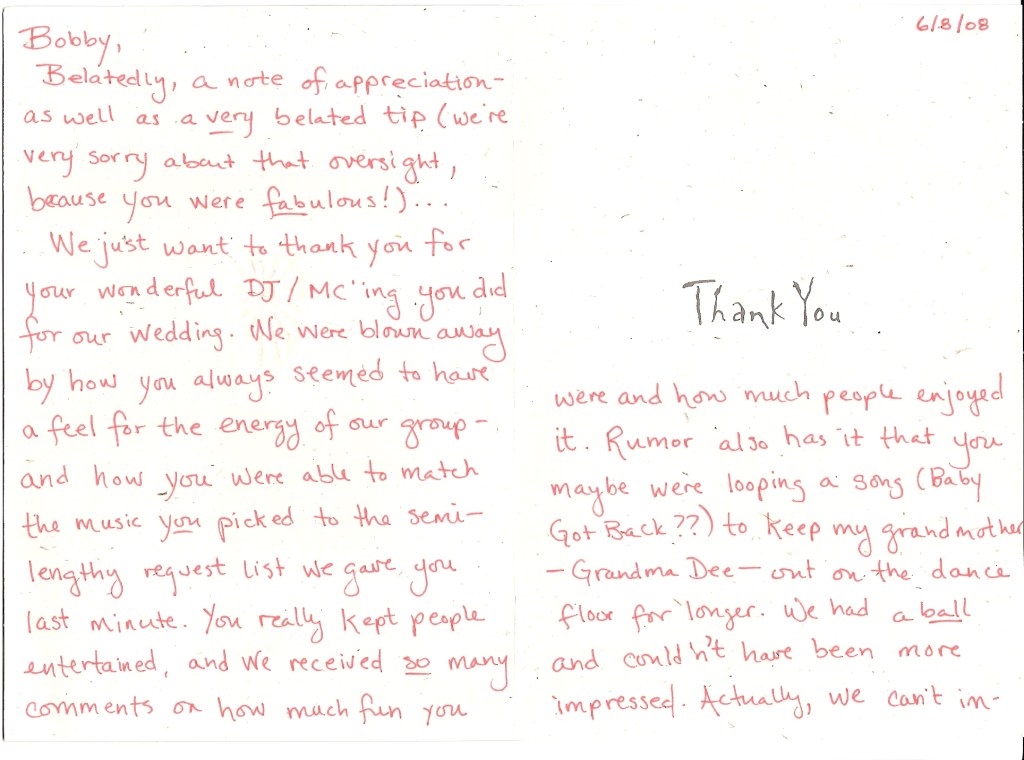 Bobby,
Belatedly, a note of appreciation-
as well as a very belated tip (we're
very sorry about that oversight,
because you were fabulous!)...
We just want to thank you for
your wonderful DJ/MC'ing you did
for our wedding. We were blown away
by how you always seemed to have
a feel for the energy of our group-
and how you were able to match
the music you picked to the semi-
lengthy request list we gave you
last minute. You really kept people
entertained, and we received so many
comments on how much fun you
6/8/08
Thank You
were and how much people enjoyed
it. Rumor also has it that you
maybe were looping a song (Baby
Got Back??) to keep my grandmother
- Grandma Dee - out on the dance
floor for longer. We had a ball
and couldn't have been more
impressed. Actually, we can't im-